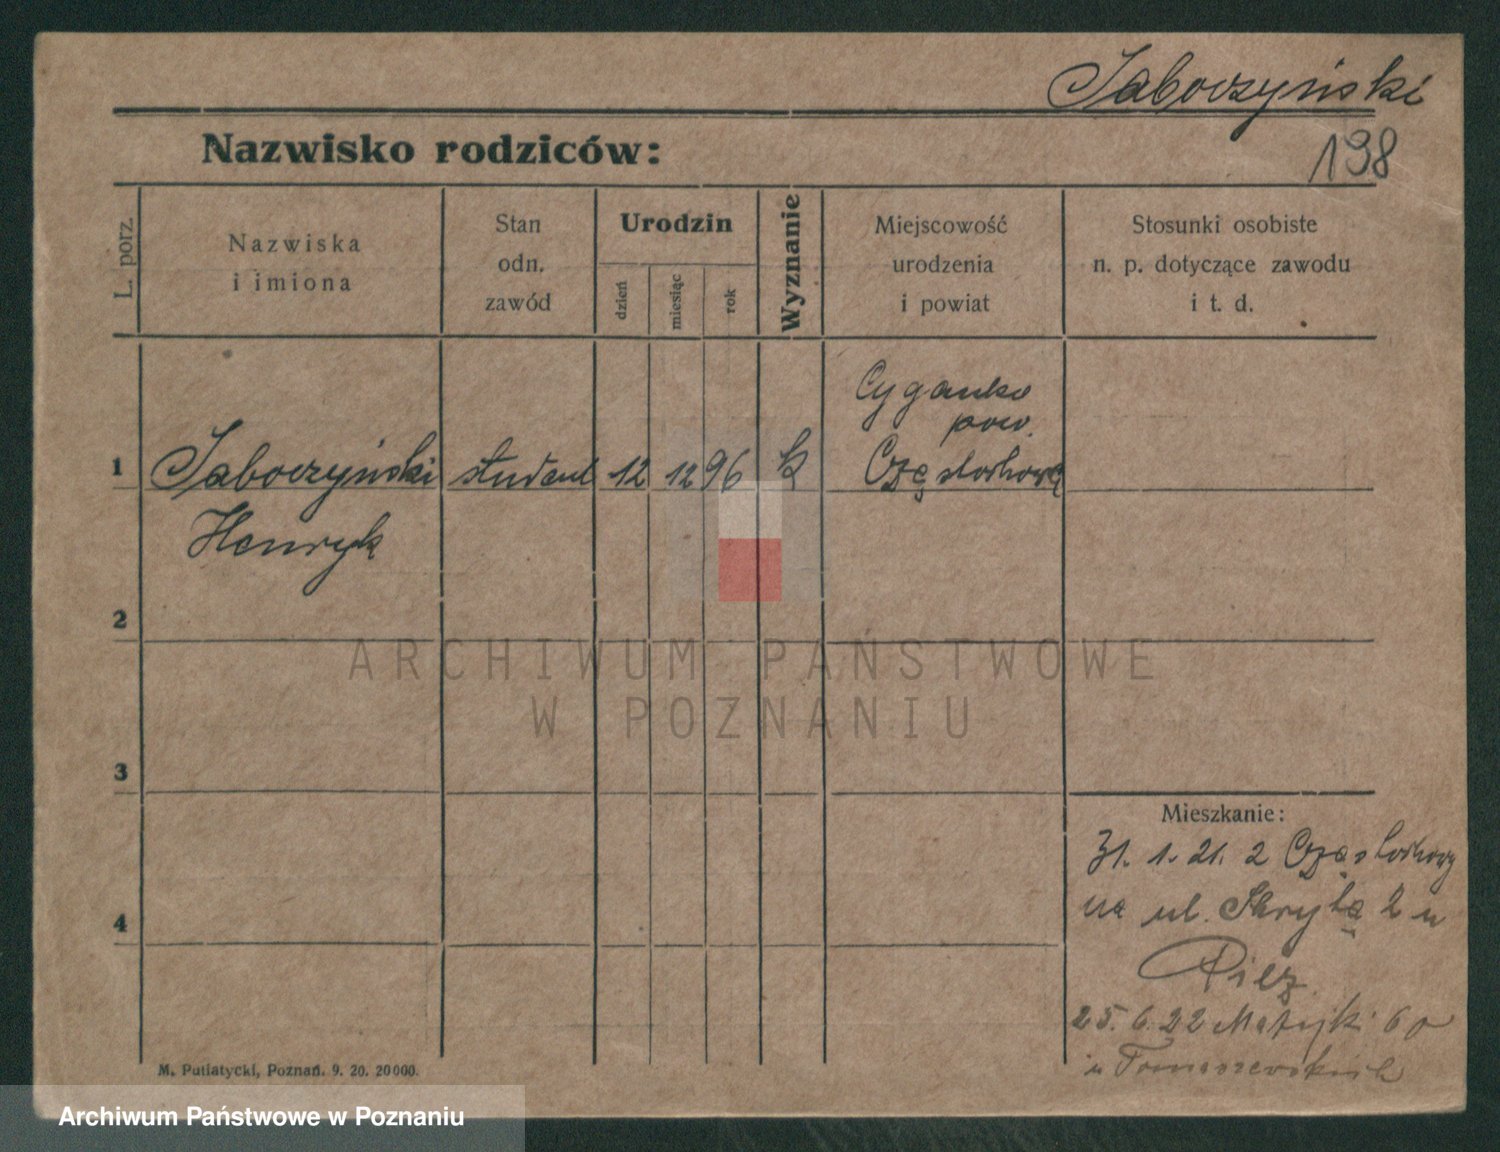 Jaboczyński
198
Nazwisko rodziców:
L. porz.
Nazwiska
i imiona
Stan
odn.
zawód
Urodzin
dzień
miesiąc
rok
Wyznanie
Miejscowość
urodzenia
i powiat
Stosunki osobiste
n. p. dotyczące zawodu
i t. d.
1
Jaboczyński student 12 12 96 k
Henryk
pow.
2
3
4
Mieszkanie:
31. 1. 21. z Częstochowy
na ul. 2 u
25. 6. 22 Matejki 60
u
M. Putiatycki, Poznań. 9. 20. 20 000.
ARCHIWUM PAŃSTWOWE
W POZNANIU
Archiwum Państwowe w Poznaniu